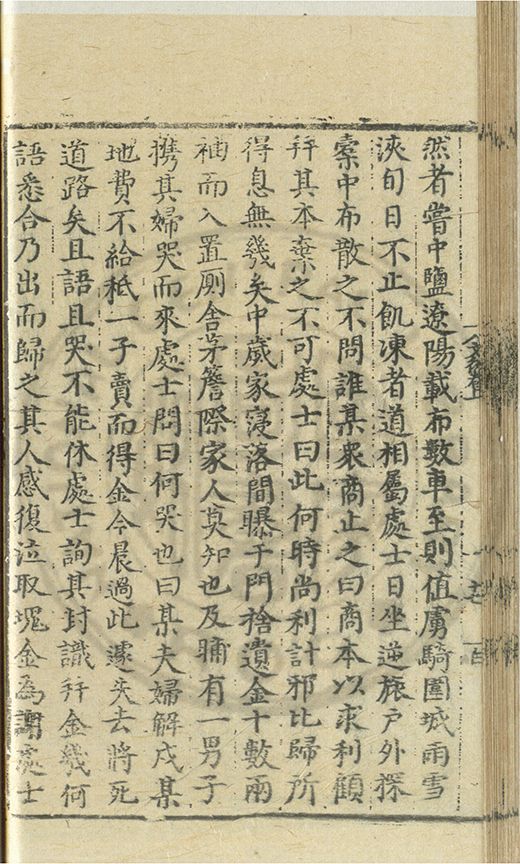 然者嘗中鹽遼陽載布數車至則值虜騎圍城雨雪
浹旬日不止飢凍者道相屬處士日坐逆旅戶外探
橐中布散之不問誰某衆商止之曰商本以求利顧
并其本棄之不可處士曰此何時尚利計邪比歸所
得息無幾矣中歲家寖落間曝于門捨遺金十數兩
袖而入置厠舍茅簷際家人莫知也及晡有一男子
携其婦哭而來處士問曰何哭也曰某夫婦解戍某
地費不給秪一子賣而得金今晨過此遽失去將死
道路矣且語且哭不能休處士詢其封識并金幾何
語悉合乃出而歸之其人感復泣取塊金為謝處士